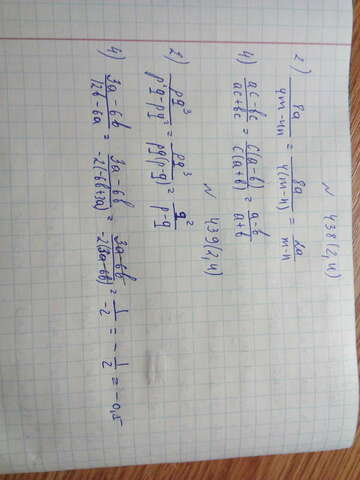 № 438(2,4)
2) 8a/(4m-4n) = 8a/(4(m-n)) = 2a/(m-n)
4) (ac-bc)/(ac+bc) = c(a-b)/c(a+b) = (a-b)/(a+b)
№ 439(2,4)
2) pq³/(p²q-pq²) = pq³/(pq(p-q)) = q²/(p-q)
4) (3a-6b)/(12b-6a) = (3a-6b)/(-2(-6b+3a)) = (3a-6b)/(-2(3a-6b)) = 1/-2 = -1/2 = -0,5